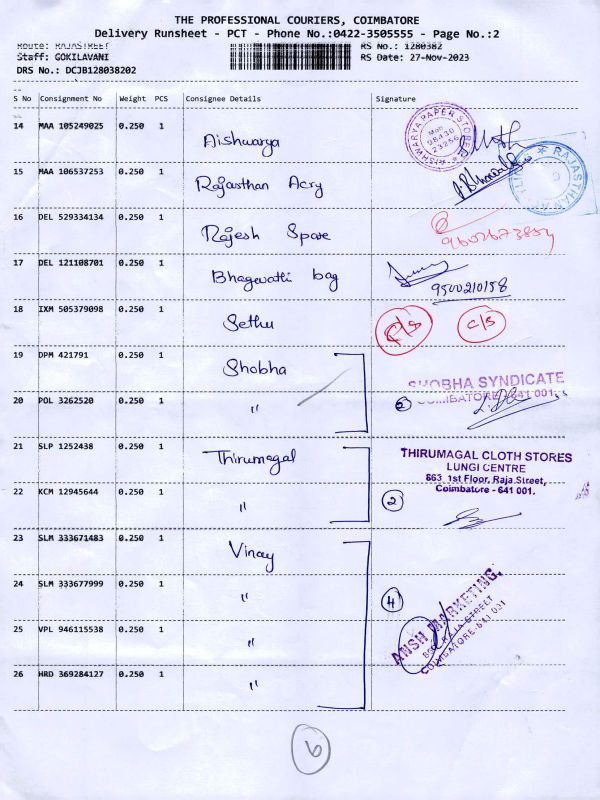 THE PROFESSIONAL COURIERS, COIMBATORE
Delivery Runsheet - PCT - Phone No.:0422-3505555 - Page No.:2
Route: RAJASTREET
RS No.: 1280382
Staff: GOKILAVANI
RS Date: 27-Nov-2023
DRS No.: DCJB128038202
S No Consignment No Weight PCS Consignee Details Signature
14 MAA 105249025 0.250 1 Aishwarya
AISHWARYA PAPER STORES
15 MAA 106537253 0.250 1 Rajasthan Acry
RAJASTHAN
16 DEL 529334134 0.250 1 Rajesh Spare
17 DEL 121108701 0.250 1 Bhagavathi bag 9500210158
18 IXM 505379098 0.250 1 Sethu C/s C/S
19 DPM 421791 0.250 1 Shobha
SHOBHA SYNDICATE
COIMBATORE - 641 001
20 POL 3262520 0.250 1 " 2
21 SLP 1252438 0.250 1 Thirumagal
THIRUMAGAL CLOTH STORES
LUNGI CENTRE
863, 1st Floor, Raja Street,
Coimbatore - 641 001.
22 KCM 12945644 0.250 1 " 2
23 SLM 333671483 0.250 1 Vinay
24 SLM 333677999 0.250 1 " 4
ANSH MARKETING.
RAJA STREET
COIMBATORE-641 001
25 VPL 946115538 0.250 1 "
26 HRD 369284127 0.250 1 "
6